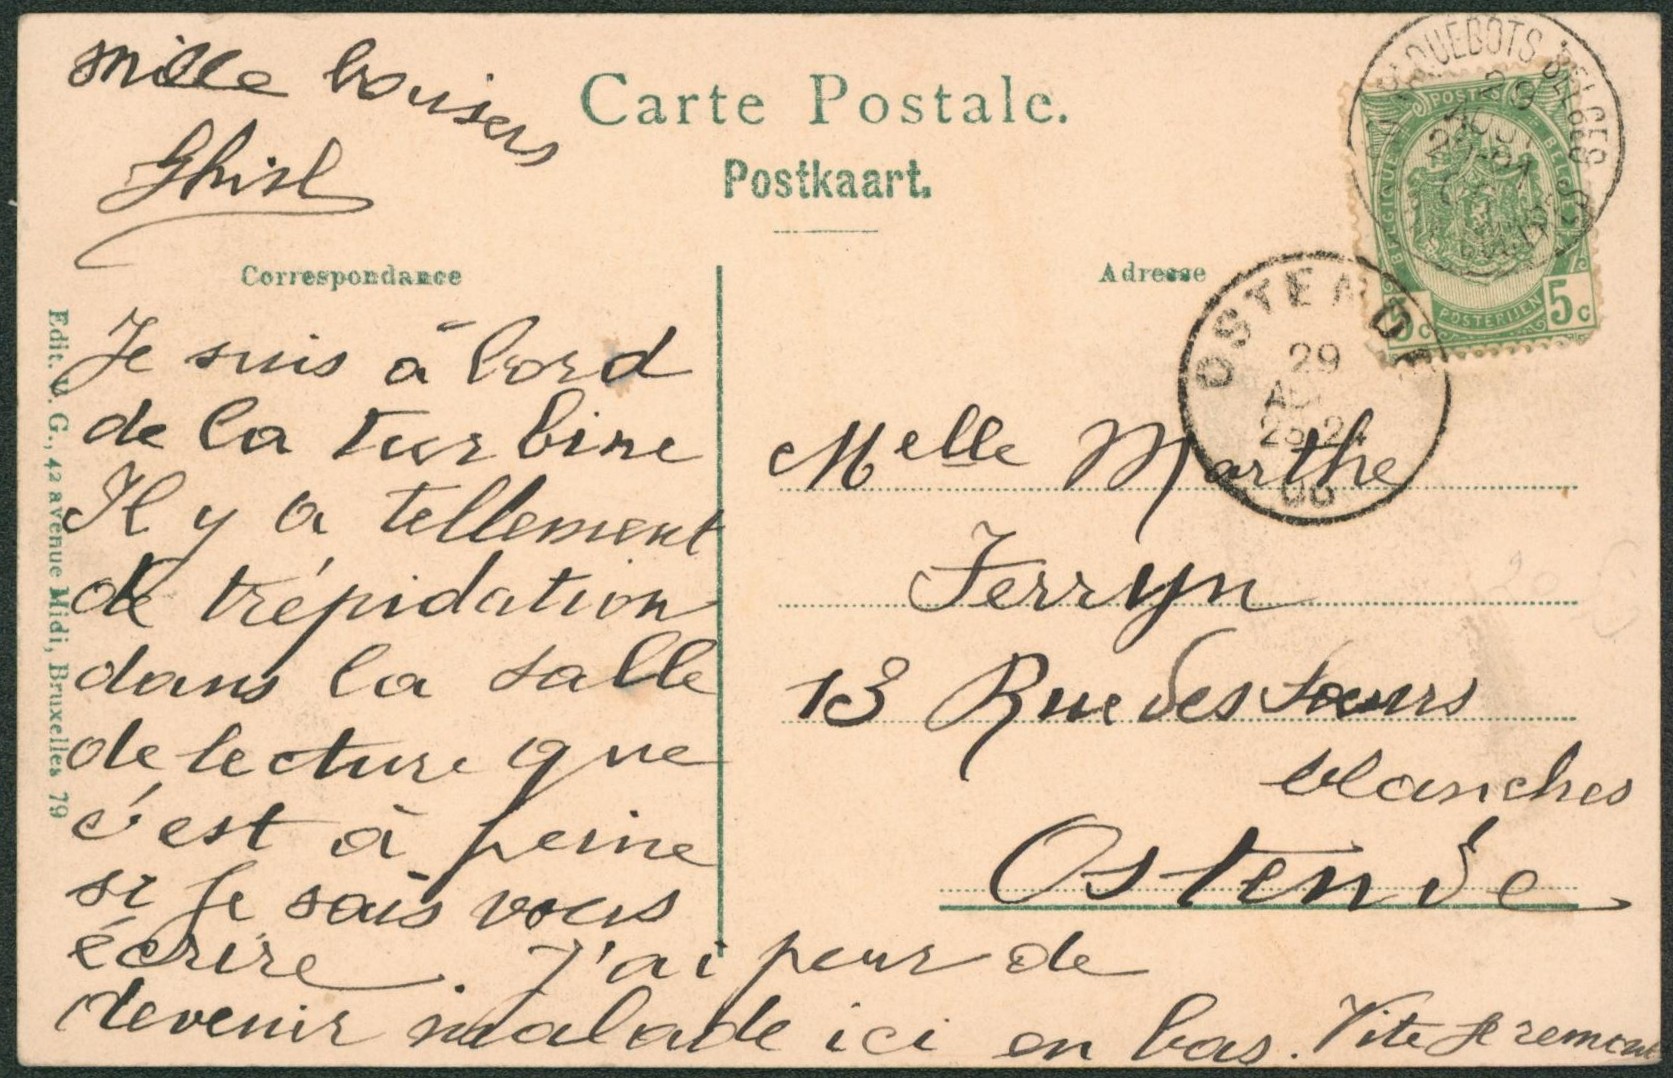 mille bonisers
Ghisl
Carte Postale.
Postkaart.
Correspondance
Adresse
Je suis à bord
de la turbine
Il y a tellement
de trépidation
dans la salle
de lecture que
c'est à peine
si je sais vous
écrire. J'ai peur de
devenir malade ici en bas. Vite je remonte
Melle Marthe
Ferryn
13 Rue des soeurs
blanches
Ostende
Edit. V. G., 42 avenue Midi, Bruxelles 79
PAQUEBOTS BELGES
29
POSTES
BELGIQUE
BELGIE
POSTERIJEN
5c 5c
OSTENDE
29
23-24
06